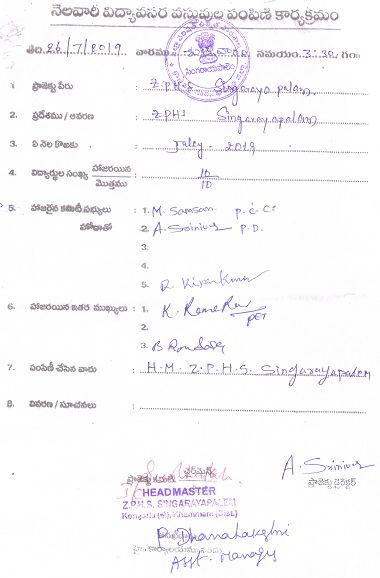 నెలవారీ విద్యావసర వస్తువుల పంపిణీ కార్యక్రమం
తేది. 26/7/2019. వారము సమయం. 3:30 గం
సింగరాయపాలెం
1 ప్రాజెక్టు పేరు : Z.P.H.S Singarayapalem
2. ప్రదేశము / ఆవరణ : ZPHS Singarayapalem
3. ఏ నెల కొఱకు : July - 2019
4. విద్యార్థుల సంఖ్య హాజరయిన : 10
మొత్తము 10
5. హాజరైన కమిటీ సభ్యులు : 1. M. Samson P.C.C
హోదాతో 2. A. Srinivas P.D.
3.
4.
5. R. Kiran Kumar
6. హాజరయిన ఇతర ముఖ్యులు : 1. K. Rama Rao
PET
2.
3. B
7. పంపిణీ చేసిన వారు : H.M. Z.P.H.S. Singarayapalem
8. వివరణ / సూచనలు :
ప్రాజెక్టు కమిటీ ఛైర్మెన్
A. Srinivas
ప్రాజెక్టు డైరెక్టర్
HEADMASTER
Z.P.H.S. SINGARAYAPALEM
Konijerla (M), Khammam (Dist.)
P. Dhanalakshmi
Asst. Manager